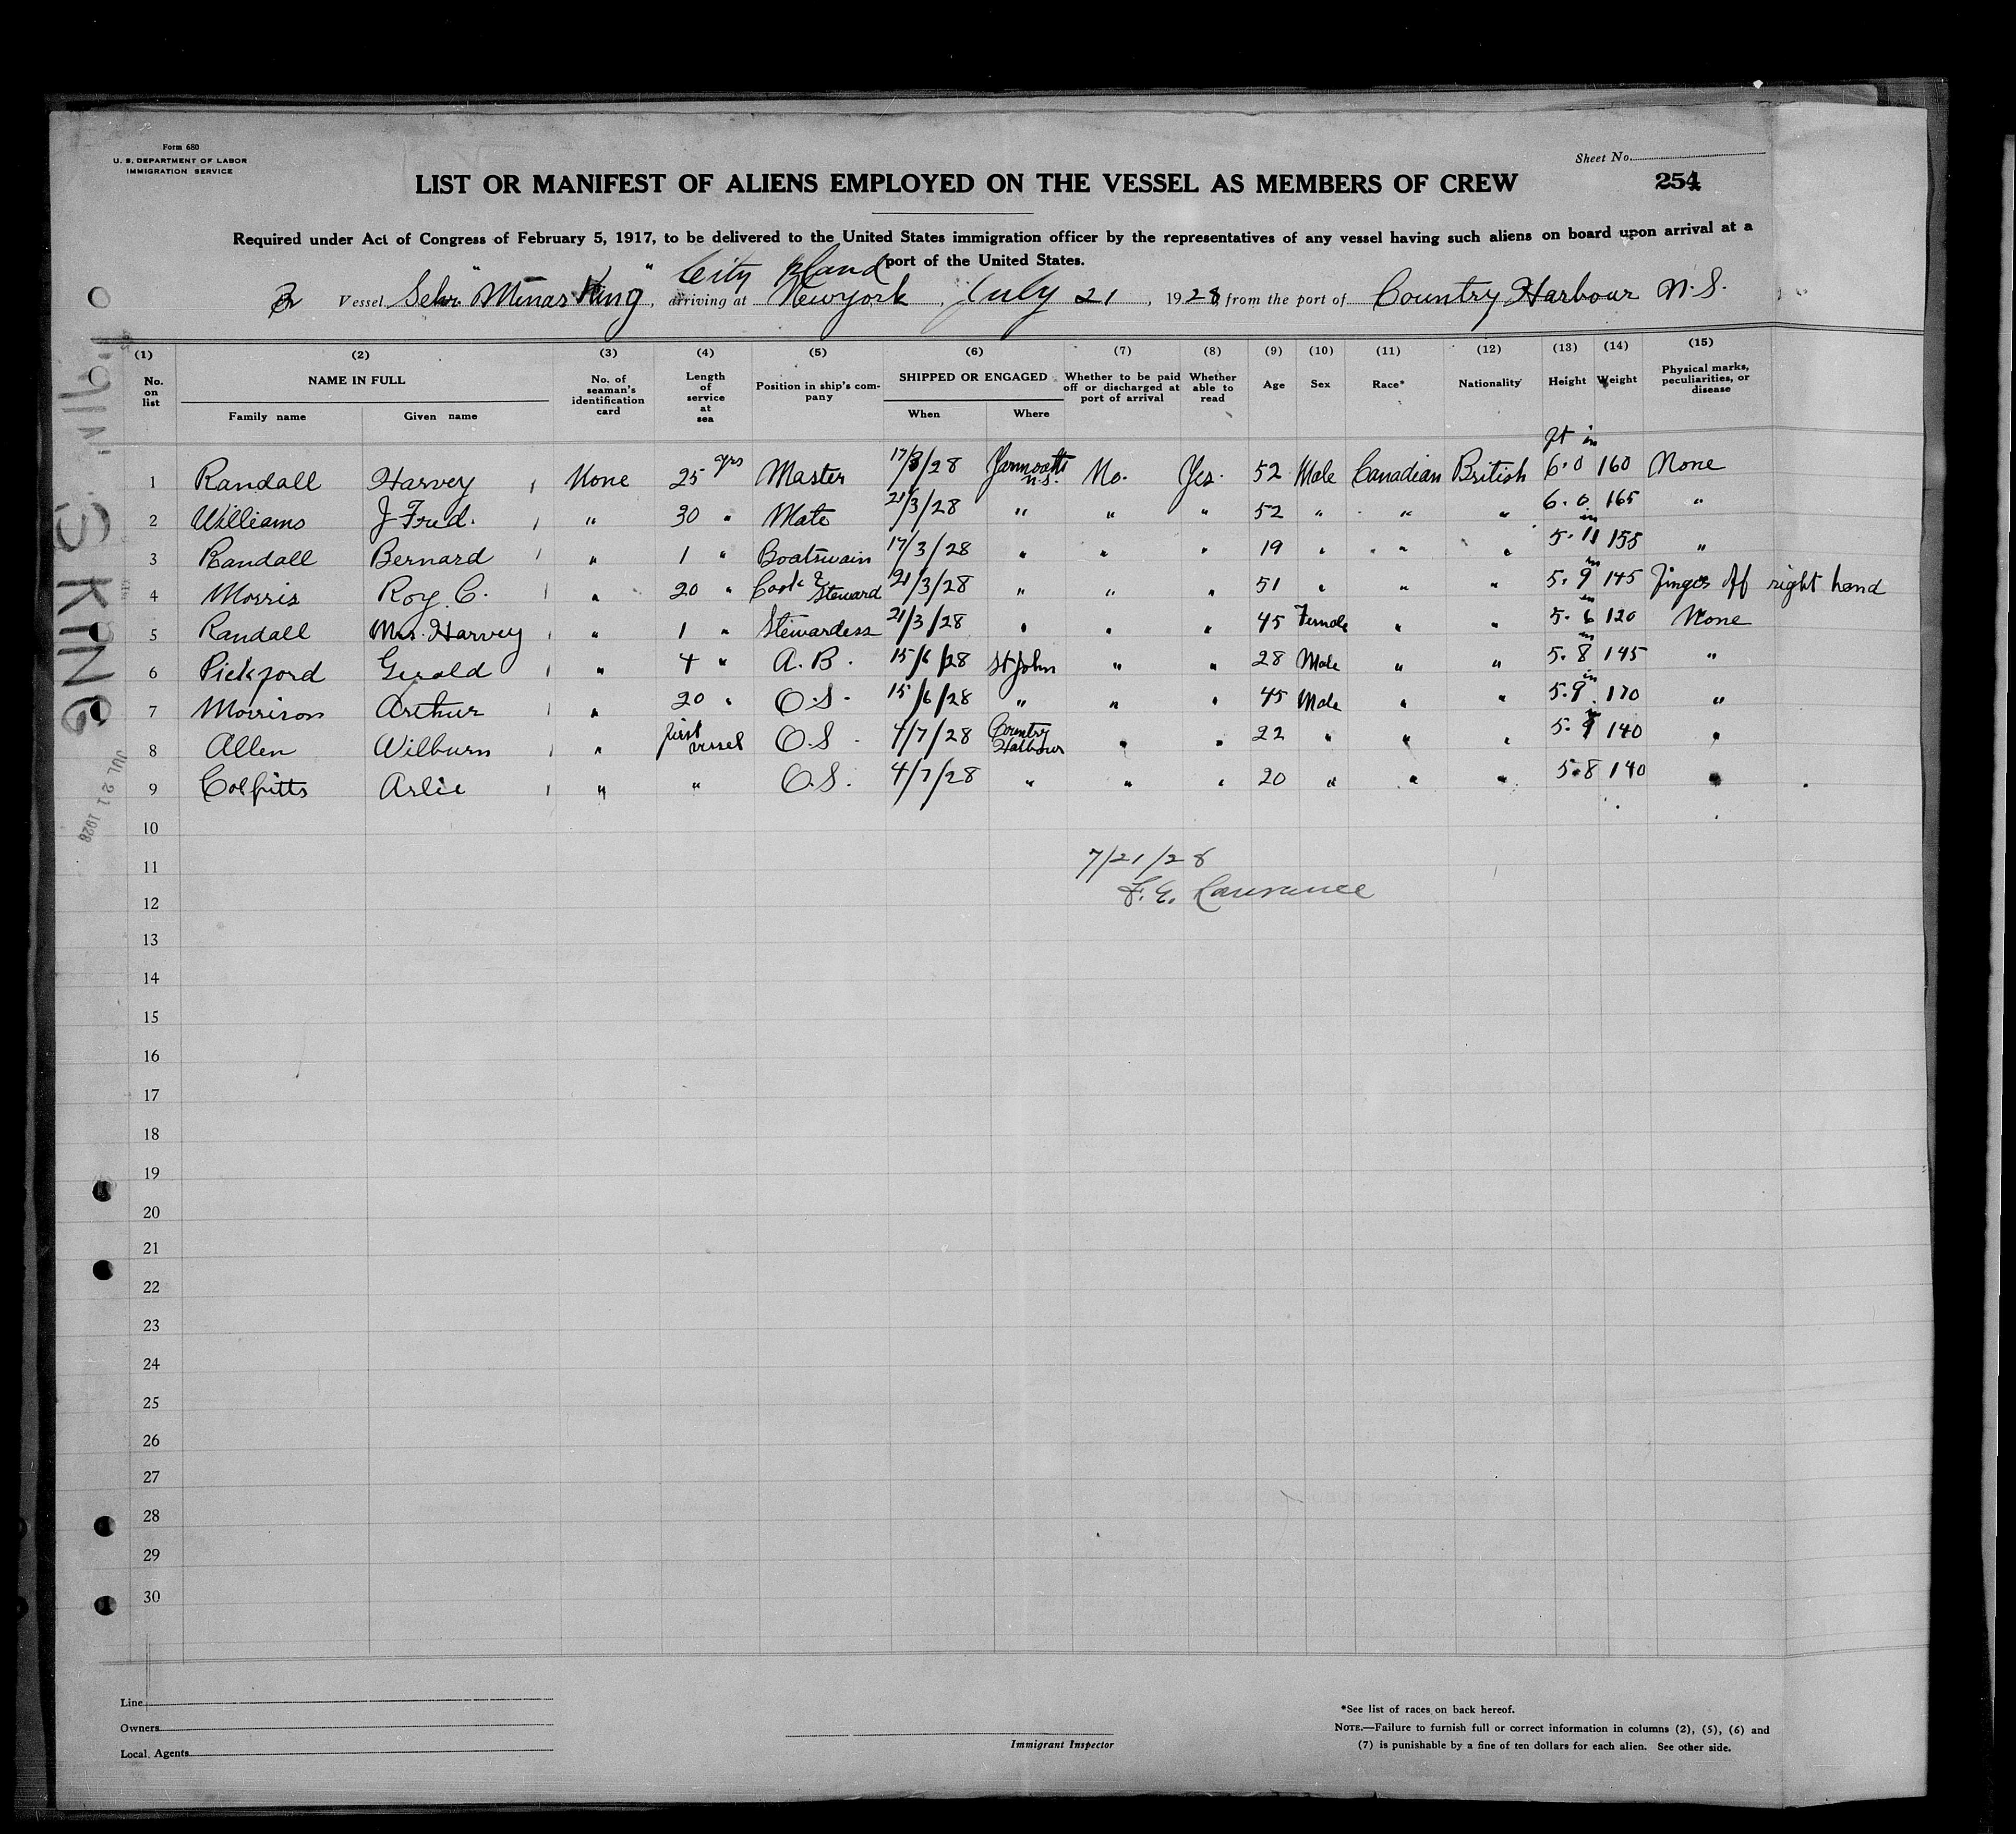 Form 680
U. S. DEPARTMENT OF LABOR
IMMIGRATION SERVICE
Sheet No.
254
LIST OR MANIFEST OF ALIENS EMPLOYED ON THE VESSEL AS MEMBERS OF CREW
Required under Act of Congress of February 5, 1917, to be delivered to the United States immigration officer by the representatives of any vessel having such aliens on board upon arrival at a
port of the United States.
City Island
Vessel Schr "Minas King", arriving at New york, July 21, 1928 from the port of Country Harbour N.S.
(1) (2) (3) (4) (5) (6) (7) (8) (9) (10) (11) (12) (13) (14) (15)
No. on list NAME IN FULL No. of seaman's identification card Length of service at sea Position in ship's company SHIPPED OR ENGAGED Whether to be paid off or discharged at port of arrival Whether able to read Age Sex Race* Nationality Height Weight Physical marks, peculiarities, or disease
Family name Given name When Where
ft in
1 Randall Harvey None 25 yrs Master 17/3/28 Yarmouth N.S. No. Yes. 52 Male Canadian British 6.0 160 None
2 Williams J Fred. " 30 " Mate 21/3/28 " " " 52 " " " 6.0 165 "
3 Randall Bernard " 1 " Boatswain 17/3/28 " " " 19 " " " 5.11 in 155 "
4 Morris Roy C. " 20 " Cook & Steward 21/3/28 " " " 51 " " " 5.9 in 145 Finger off right hand
5 Randall Mrs. Harvey " 1 " Stewardess 21/3/28 " " " 45 Female " " 5.6 in 120 None
6 Pickford Gerald " 4 " A.B. 15/6/28 St John " " 28 Male " " 5.8 in 145 "
7 Morrison Arthur " 20 " O.S. 15/6/28 " " " 45 Male " " 5.9 in 170 "
8 Allen Wilburn " first vessel O.S. 4/7/28 Country Harbour " " 22 " " " 5.9 in 140 "
9 Colpitts Arlie " " O.S. 4/7/28 " " " 20 " " " 5.8 140 "
10
11 7/21/28
12 F. E. Lawrance
13
14
15
16
17
18
19
20
21
22
23
24
25
26
27
28
29
30
S KING
JUL 21 1928
Line
Owners
Local Agents
Immigrant Inspector
*See list of races on back hereof.
NOTE.—Failure to furnish full or correct information in columns (2), (5), (6) and
(7) is punishable by a fine of ten dollars for each alien. See other side.